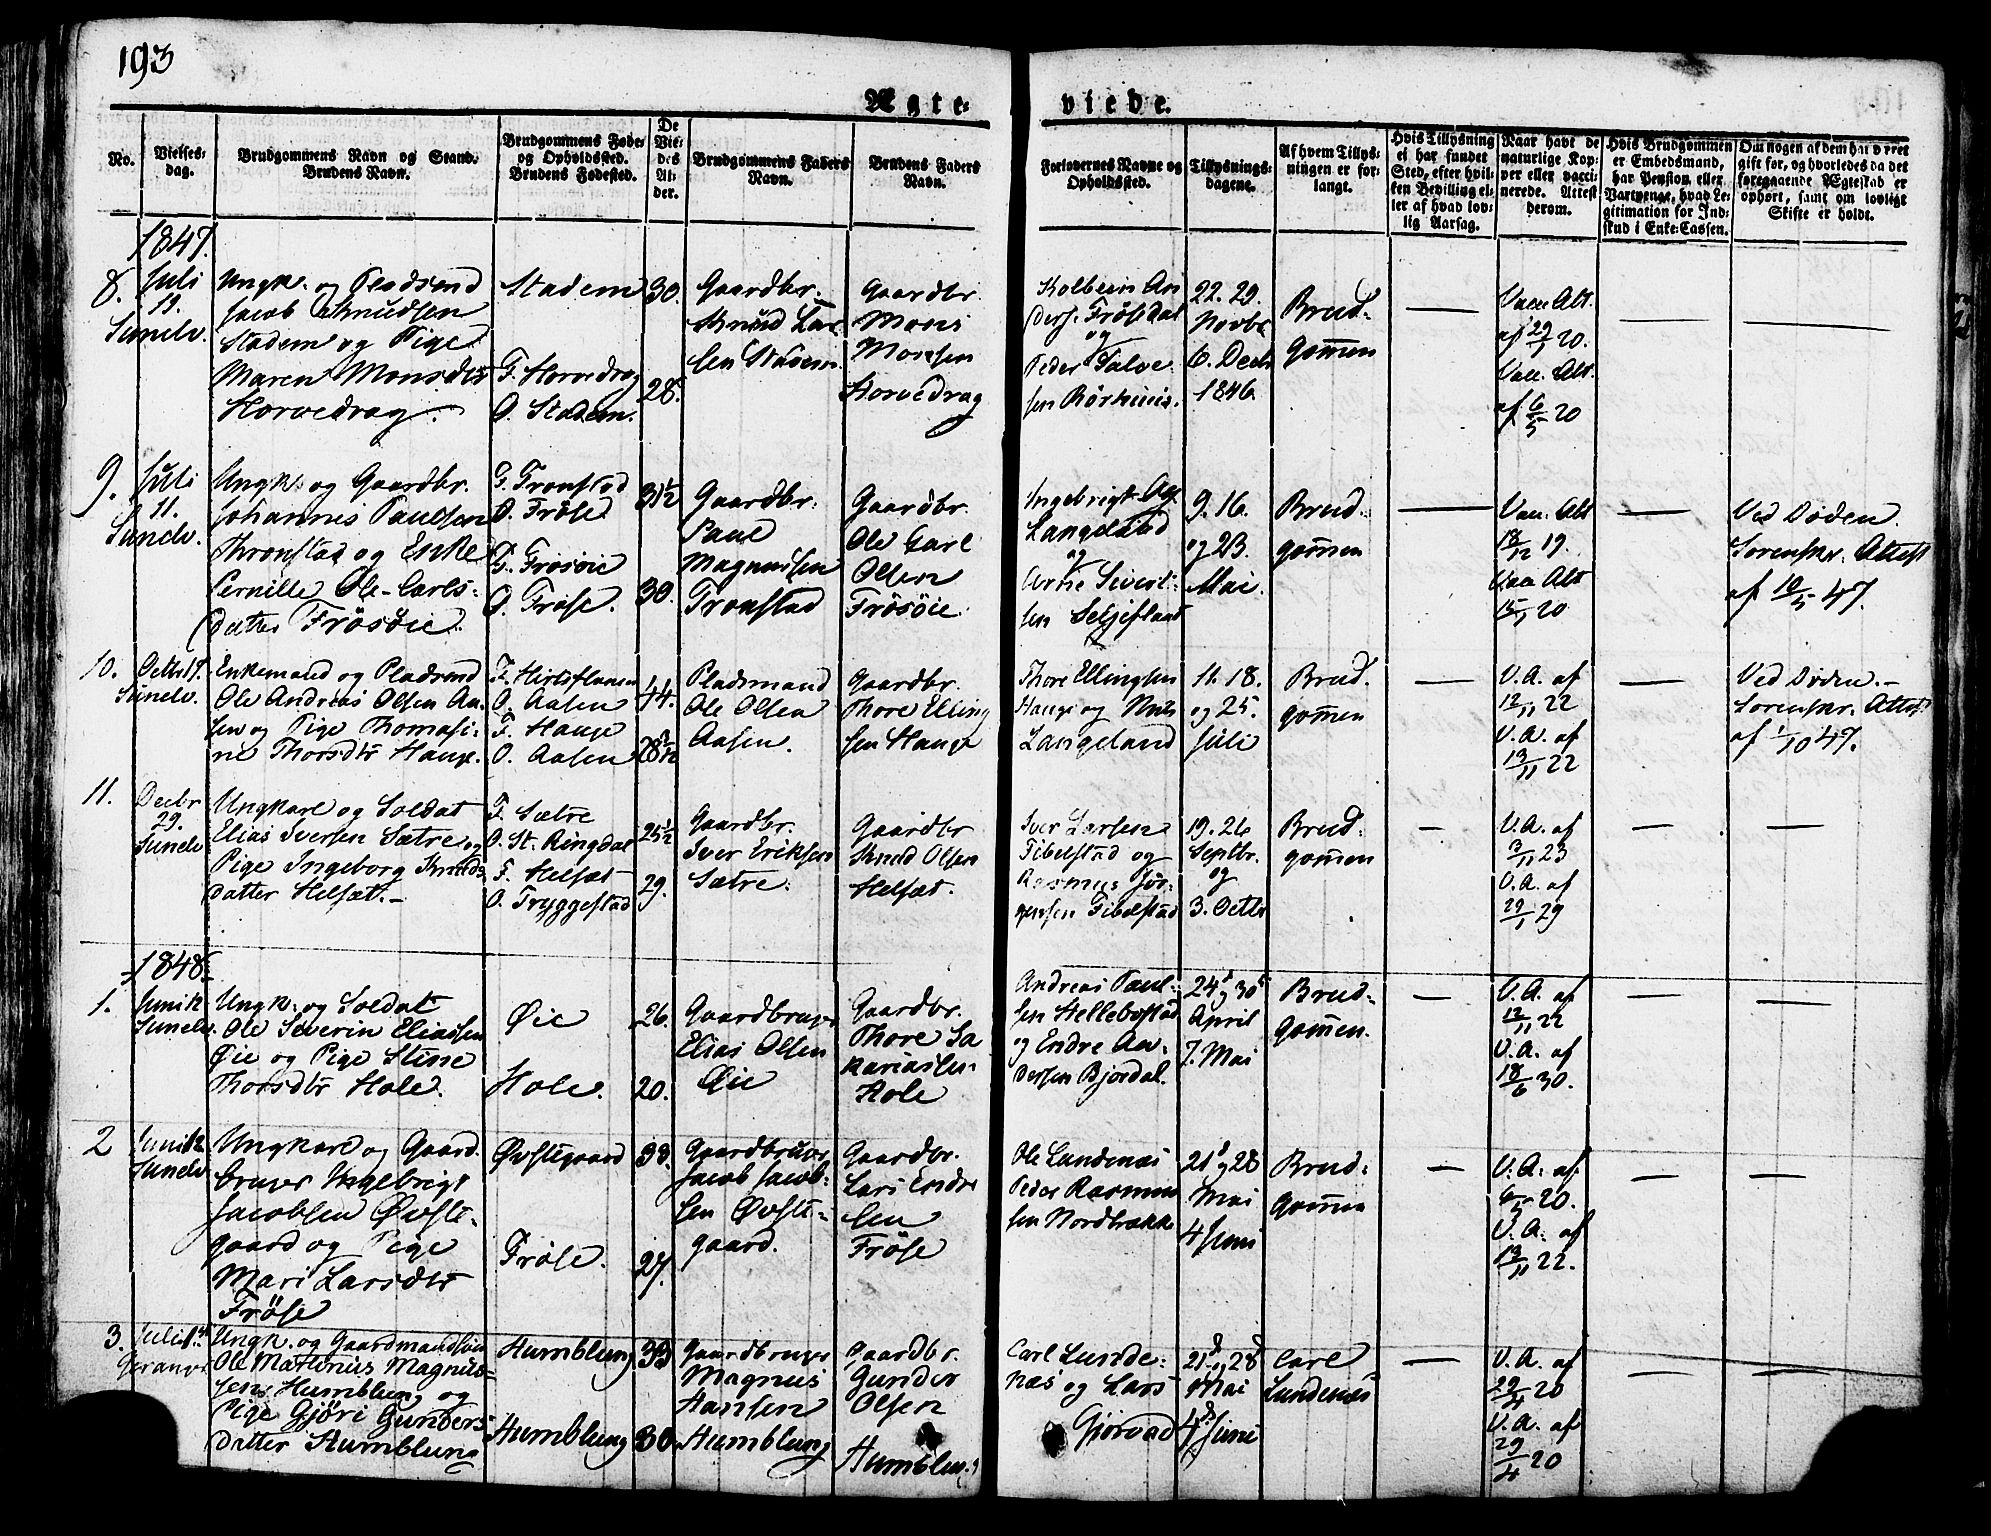 193
Ægte-
viede.
No.
Vielses-
dag.
Brudgommens Navn og Stand.
Brudens Navn.
Brudgommens Føde-
og Opholdssted.
Brudens Fødested.
De
Vie-
des
Al-
der.
Brudgommens Faders
Navn.
Brudens Faders
Navn.
Forlovernes Navne og
Opholdssted.
Tillysnings-
dagene.
Af hvem Tillys-
ningen er for-
langt.
Hvis Tillysning
ei har fundet
Sted, efter hvil-
ken Bevilling el-
ler af hvad lov-
lig Aarsag.
Naar havt de
naturlige Kop-
per eller vacci-
nerede. Attest
derom.
Hvis Brudgommen
er Embedsmand,
har Pension eller
Vartpenge, hvad Le-
gitimation for Ind-
skud i Enke-Cassen.
Om nogen af dem har været
gift før, og hvorledes da det
foregaaende Ægteskab er
ophørt, samt om lovligt
Skifte er holdt.
1847.
8.
Juli
Sunelv.
Ungk. og Pladsmd
Jacob Knudsen
Stadem og Pige
Maren Monsdtr
Horvedrag.
Stadem
F. Horvedrag
O. Stadem.
30.
28.
Gaardbr.
Knud Lar-
sen Stadem
Gaardbr.
Mons
Monsen
Horvedrag
Kolbein An
ders. Frøisdal
og
Peder Salve
sen
22. 29.
Novbr
6. Decbr
1846.
Brud-
gommen
Vacc. Att.
af 29/7 20.
Vacc. Att.
af 6/5 20
9.
Juli
11.
Sunelv.
Ungk. og Gaardbr.
Johannes Paulsen
Thronstad og Enke
Pernille Ole-Carls-
datter Frøsøie.
F. Tronstad
O. Frøse.
F. Frøsøie
O. Frøse.
31½
30.
Gaardbr.
Paul
Magnussen
Tronstad
Gaardbr.
Ole Carl
Olsen
Frøsøie.
Ingebrigt
Langeland
og
Arne Sivert-
sen
9. 16.
og 23.
Mai.
Brud-
gommen
Vacc. Att
18/12 19.
Vacc Att
15/1 20
Ved Døden.
Sorenskr. Attest
af 10/5 47.
10.
Sunelv.
Enkemand og Pladsmd
Ole Andreas Olsen Aa-
sen og Pige Thomasi-
ne Thorsdtr Hauge.
O. Aasen
F. Hauge
O. Aasen
44.
Pladsmand
Ole Olsen
Aasen.
Gaardbr.
Thore Elling
sen Hauge
Thore Ellingsen
Hauge og
Langeland
11. 18.
og 25.
Juli
Brud-
gommen
V. A. af
12/11 22
V. A. af
13/11 22
Ved Døden.
Sorenskr. Attest
af 1/10 47.
11.
Decbr
29.
Sunelv.
Ungkarl og Soldat
Elias Iversen Sætre og
Pige Ingeborg Knuds
datter Helsæt.
F. Sætre
O. St. Ringdal
F. Helsæt
O. Tryggestad
25½
29.
Gaardbr.
Iver Eriksen
Sætre.
Gaardbr
Knud Olsen
Helsæt.
Iver Larsen
Fibelstad og
Rasmus Jør-
gensen Fibelstad
19. 26
Septbr.
og
3. Octbr
Brud-
gommen
V. A. af
3/11 23
V. A. af
29/1 29
1848.
1.
Sunelv.
Ungk. og Soldat
Ole Severin Eliassen
Øie og Pige Stine
Thorsdtr Hole.
Øie
Hole.
26.
20.
Gaardbruger
Elias Olsen
Øie
Gaardbr.
Thore Sa
kariassen
Hole
Andreas Paul-
sen Hellebostad
og Endre An-
dersen Bjordal.
24 og 30
April
7. Mai
Brud-
gommen.
V. A. af
12/11 22
V. A. af
18/6 30.
2
Sunelv.
Ungkarl og Gaard-
bruger Ingebrigt
Jacobsen Øvste-
gaard og Pige
Mari Larsdtr
Frøse
Øvstegaard
Frøse.
33.
27.
Gaardbruger
Jacob Jacob-
sen Øvste-
gaard.
Gaardbr.
Lars Endre
sen
Frøse
Ole Lundenæs
Peder Rasmus
sen Nordbrække
21 og 28
Mai
4 Juni
Brud-
gommen
V. A. af
6/5 20.
V. A. af
13/11 22.
3.
Geranger
Ungk. og Gaardmandssøn
Ole Mathinus Magnus-
sen Humblung og
Pige Gjøri Gunders
datter Humblung
Humblung
Humblung
33
30.
Gaardbruger
Magnus
Hansen
Humblung
Gaardbr.
Gunder
Olsen
Humblung
Carl Lunde-
næs og Lars
Gjørvad
21 og 28
Mai
4 Juni
Carl
Lundenæs
V. A. af
29/4 20
V. A. af
29/4 20